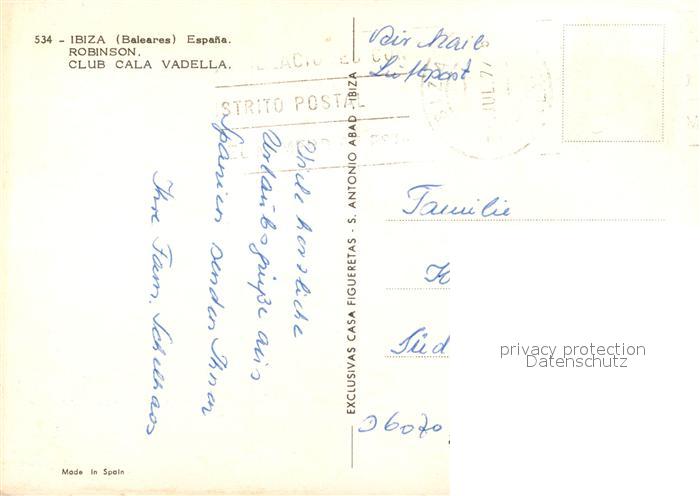 534 - IBIZA (Baleares) España.
ROBINSON.
CLUB CALA VADELLA.
STRITO POSTAL
JUL 77
Air Mail
Luftpost
Viele herzliche
Urlaubsgrüße aus
Spanien senden Ihnen
Ihre Fam. Schelhaas
EXCLUSIVAS CASA FIGUERETAS - S. ANTONIO ABAD IBIZA
Familie
K
Süd
D 6070
privacy protection
Datenschutz
Made in Spain